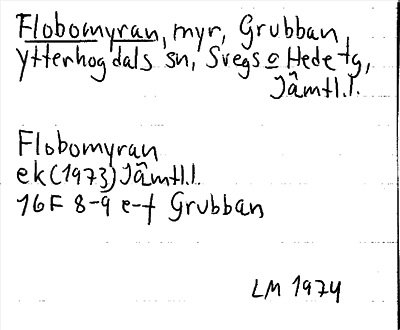 Flobomyran, myr, Grubban,
Ytterhogdals sn, Svegs o Hede tg,
Jämtl.l.
Flobomyran
ek (1973) Jämtl.l.
16F 8-9 e-f Grubban
LM 1974